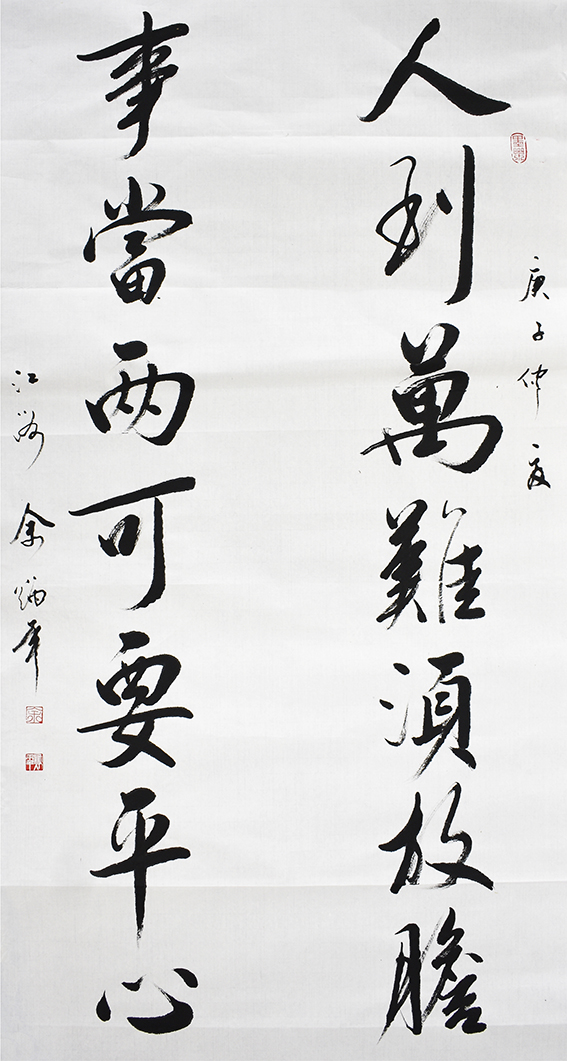 庚子仲夏
人到萬難須放膽
事當两可要平心
江務
余炳年